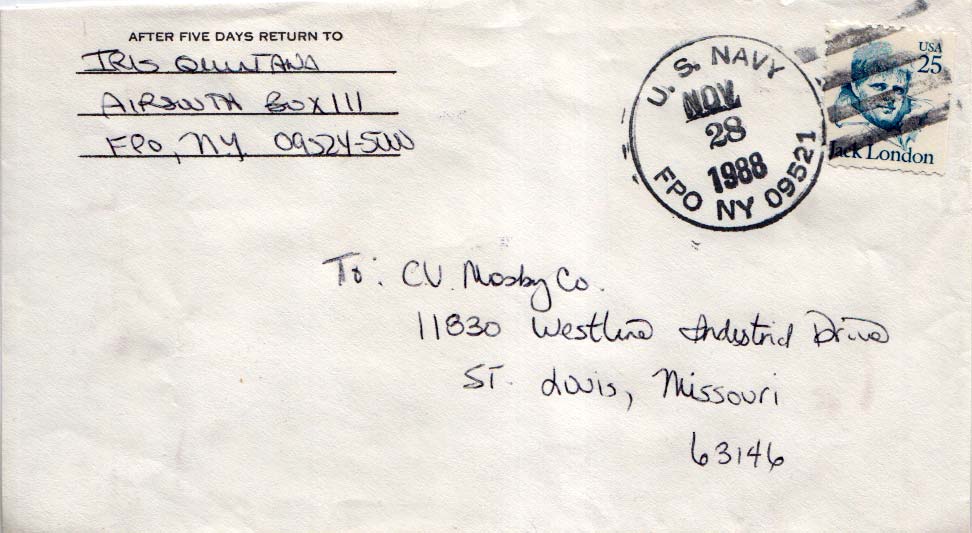 AFTER FIVE DAYS RETURN TO
IRIS QUINTANA
AIRSOUTH BOX 111
FPO, N.Y. 09524-5000
U. S. NAVY
NOV
28
1988
FPO NY 09521
USA
25
Jack London
To: C.V. Mosby Co.
11830 Westline Industrial Drive
ST. Louis, Missouri
63146